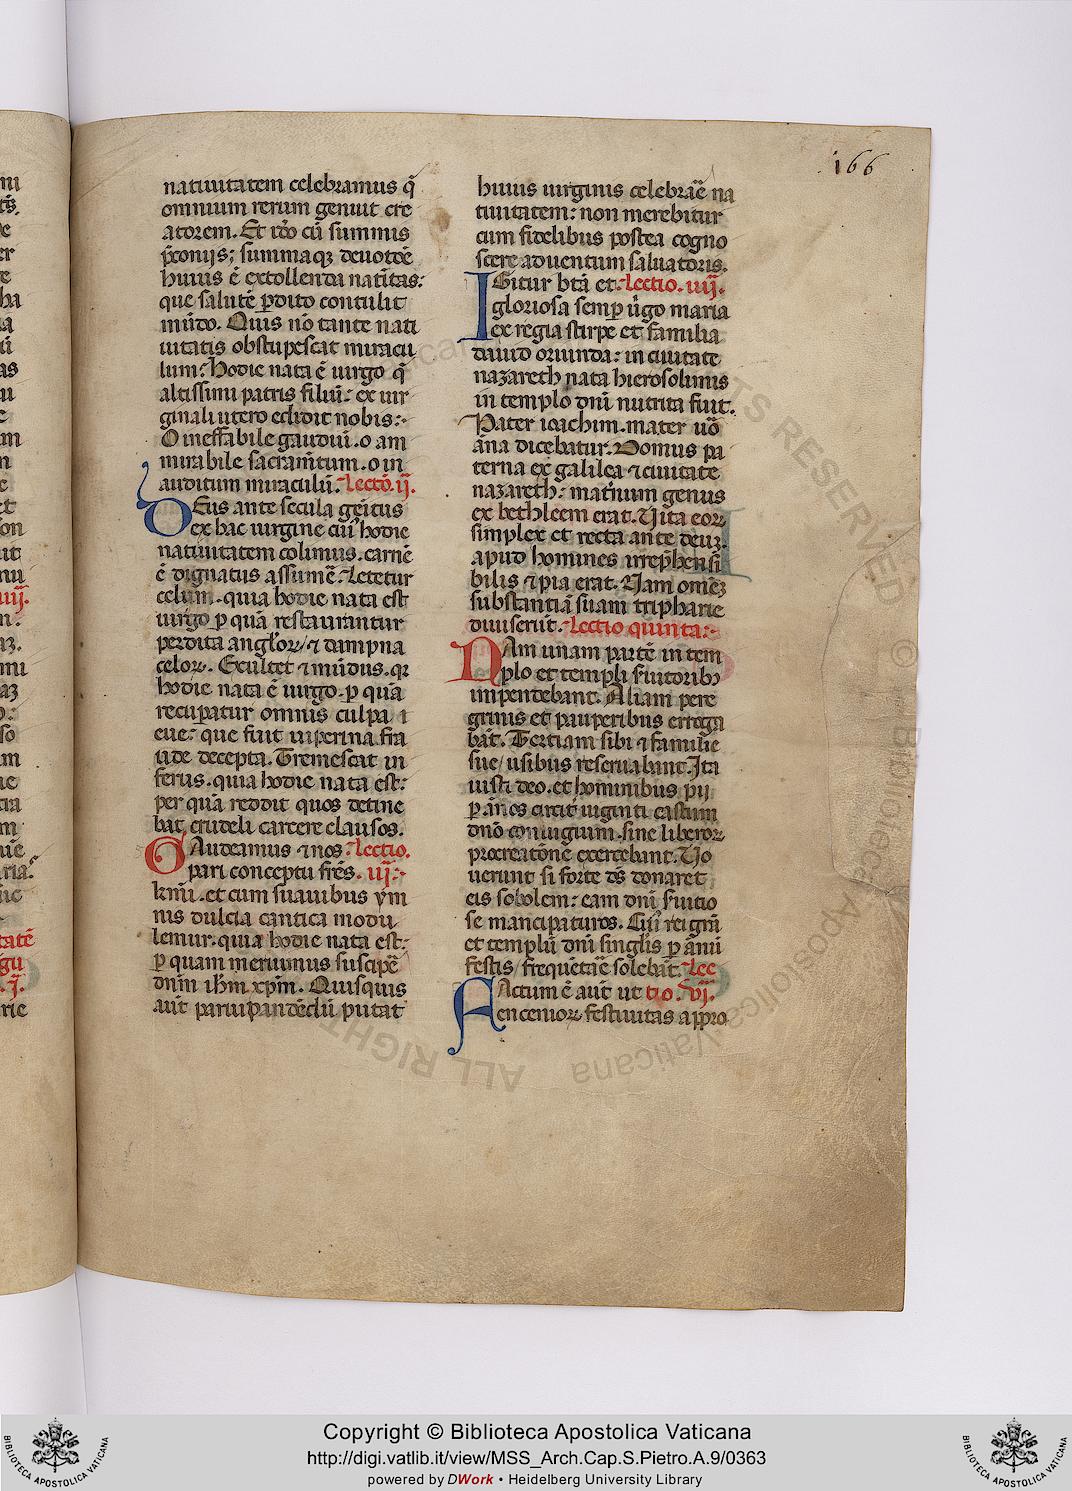 166
natiuitatem celebramus q̄
omnium rerum genuit cre
atorem. Et iō cū summis
p̄conijs; summaqȝ deuotōe
huius ē extollenda natīitas:
que salutē ꝑdito contulit
mūdo. Quis nō tante nati
uitatis obstupescat miracu
lum: hodie nata ē uirgo q̄
altissimi patris filiū: ex uir
ginali utero edidit nobis:
O ineffabile gaudiū. o am
mirabile sacramētum. o in
auditum miraculū. Lectō. ij.
Deus ante secula genitus
ex hac uirgine cuiꝰ hodie
natiuitatem colimus. carnē
ē dignatus assumē. Letetur
celum. quia hodie nata est
uirgo ꝑ quā restaurantur
perdita anglorꝝ / ⁊ dampna
celorꝝ. Exultet ⁊ mūdus. qꝛ
hodie nata ē uirgo. ꝑ quā
recupatur omnis culpa i
eue: que fuit uiperina fra
ude decepta. Tremescat in
ferus. quia hodie nata est:
per quā reddit quos detine
bat crudeli carcere clausos.
Gaudeamus ⁊ nos Lectio.
pari conceptu frēs. iij.
kmi. et cum suauibus ym
nis dulcia cantica modu
lemur. quia hodie nata est:
ꝑ quam meruimus suscipē
dn̄m ih̄m xp̄m. Quisquis
aut̄ paruipandēdū putat
huius uirginis celebrāe na
tiuitatem: non merebitur
cum fidelibus postea cogno
scere aduentum saluatoris.
Igitur bt̄a et Lectio. iiij.
gloriosa semꝑ ūgo maria
ex regia stirpe et familia
dauid oriunda: in ciuitate
nazareth nata hierosolimis
in templo dn̄i nutrita fuit.
Pater ioachim. mater uō
āna dicebatur. Domus pa
terna ex galilea ⁊ ciuitate
nazareth: mat̄num genus
ex bethleem erat. Vita eorꝝ
simplex et recta ante deuȝ.
apud homines irrep̄hensi
bilis ⁊ pia erat. Nam omēȝ
substantiā suam tripharie
diuiserūt. Lectio quinta:
Nam unam partē in tem
plo et templi s̄uitoribꝰ
impendebant. Aliam pere
grinis et pauperibus erroga
bāt. Tertiam sibi ⁊ familie
sue / usibus reseruabant. Ita
iusti deo. et hominibus pij
ꝑ ānos circit̄ uiginti castum
dn̄o coniugium. sine liberorꝝ
procreatōne exercebant. Vo
uerunt si forte dē donaret
eis sobolem: eam dn̄i s̄uitio
se mancipaturos. Cuiꝰ rei gr̄a
et templū dn̄i singl̄is ꝑ ānū
festis / frequētāe solebāt. Lec
Factum ē aut̄ ut tio. vj.
enceniorꝝ festiuitas appro
Copyright © Biblioteca Apostolica Vaticana
http://digi.vatlib.it/view/MSS_Arch.Cap.S.Pietro.A.9/0363
powered by DWork • Heidelberg University Library